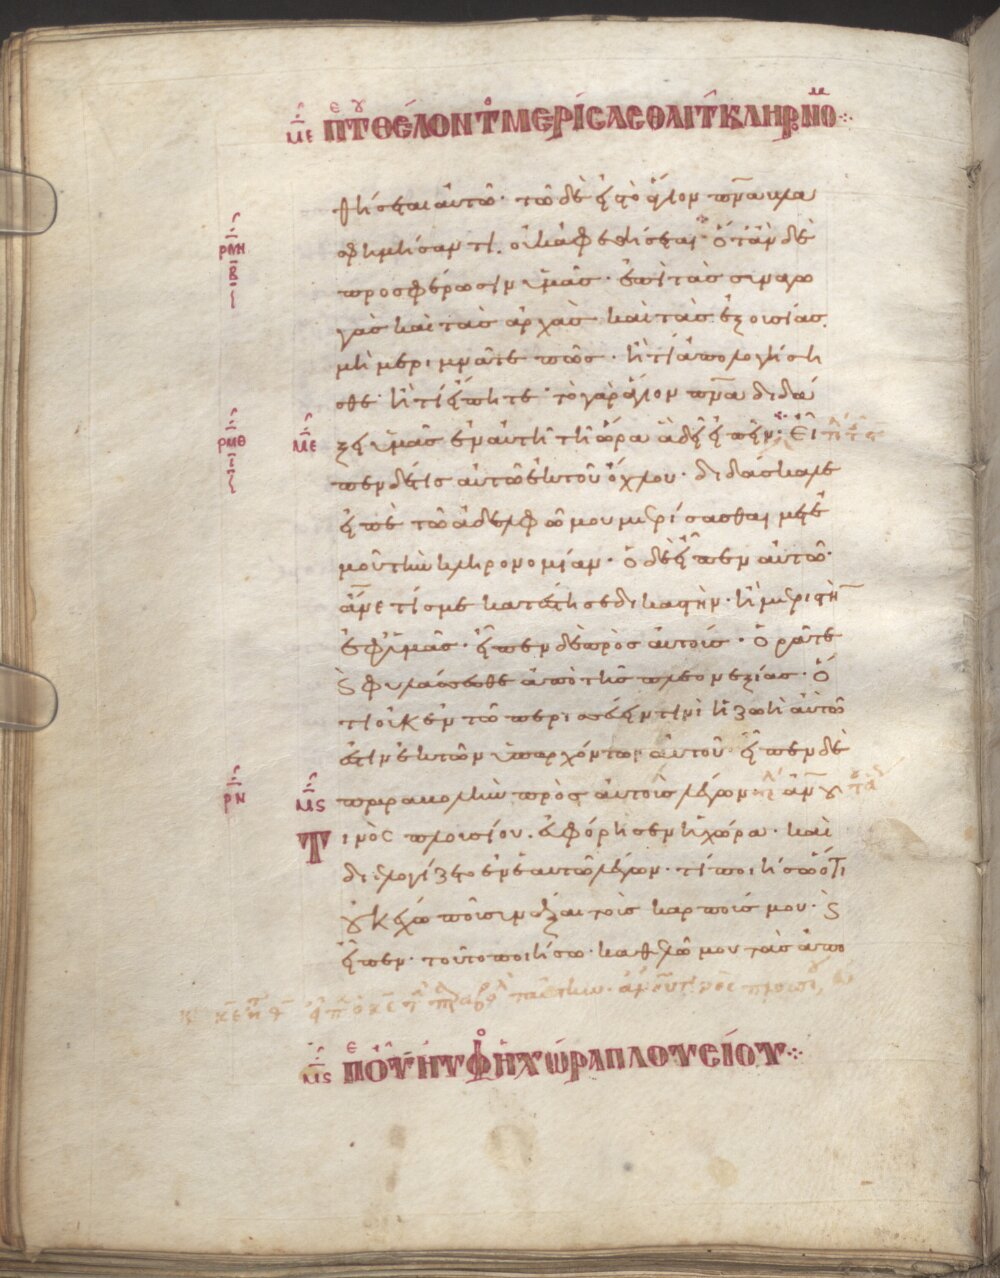 με πτ θέλοντ μερίσασθαι τ κληρνο
θήσεται αὐτῶ· τῶ δὲ εἰς τὸ ἅγιον πνα βλα
ρμη
β
σφημήσαντι, οὐκ ἀφεθήσεται· ὅταν δὲ
προσφέρωσιν ὑμᾶς· ἐπὶ τὰς συναγω
γὰς καὶ τὰς ἀρχὰς καὶ τὰς ἐξουσίας,
μὴ μεριμνᾶτε πῶς· ἢ τί ἀπολογήση
σθε· ἢ τί εἴπητε· τὸ γὰρ ἅγιον πνα διδά
ρμθ
ι
με
ξει ὑμᾶς ἐν αὐτῆ τῆ ὥρα ἃ δεῖ εἰπεῖν· εἶ
πεν δέ τις αὐτῶ ἐκ τοῦ ὄχλου· διδάσκαλε
εἰπὲ τῶ ἀδελφῶ μου μερίσασθαι μετ ἐ
μοῦ τὴν κληρονομίαν· ὁ δὲ εἶπεν αὐτῶ·
ἄνε τίς με κατέστησε δικαστὴν· ἢ μεριστὴ
ἐφ ὑμᾶς· εἶπεν δὲ πρὸς αὐτούς· ὁρᾶτε
ϛ φυλάσσεσθε ἀπὸ τῆς πλεονεξίας· ὅ
τι οὐκ ἐν τῶ περισσεύειν τινὶ ἡ ζωὴ αὐτῶ
ἐστὶν ἐκ τῶν ὑπαρχόντων αὐτοῦ· εἶπεν δὲ
ρν
μϛ
παραβολὴν πρὸς αὐτοὺς λέγων
Τινὸς πλουσίου. εὐφόρησεν ἡ χώρα· καὶ
διελογίζετο ἐν ἑαυτῶ λέγων· τί ποιήσω ὅτι
οὐκ ἔχω ποῦ συνάξαι τοὺς καρποὺς μου· ϛ
εἶπεν· τοῦτο ποιήσω· καθελῶ μου τὰς ἀπο
μϛ π οὗ ηὐφ ἡ χώρα πλουσίου